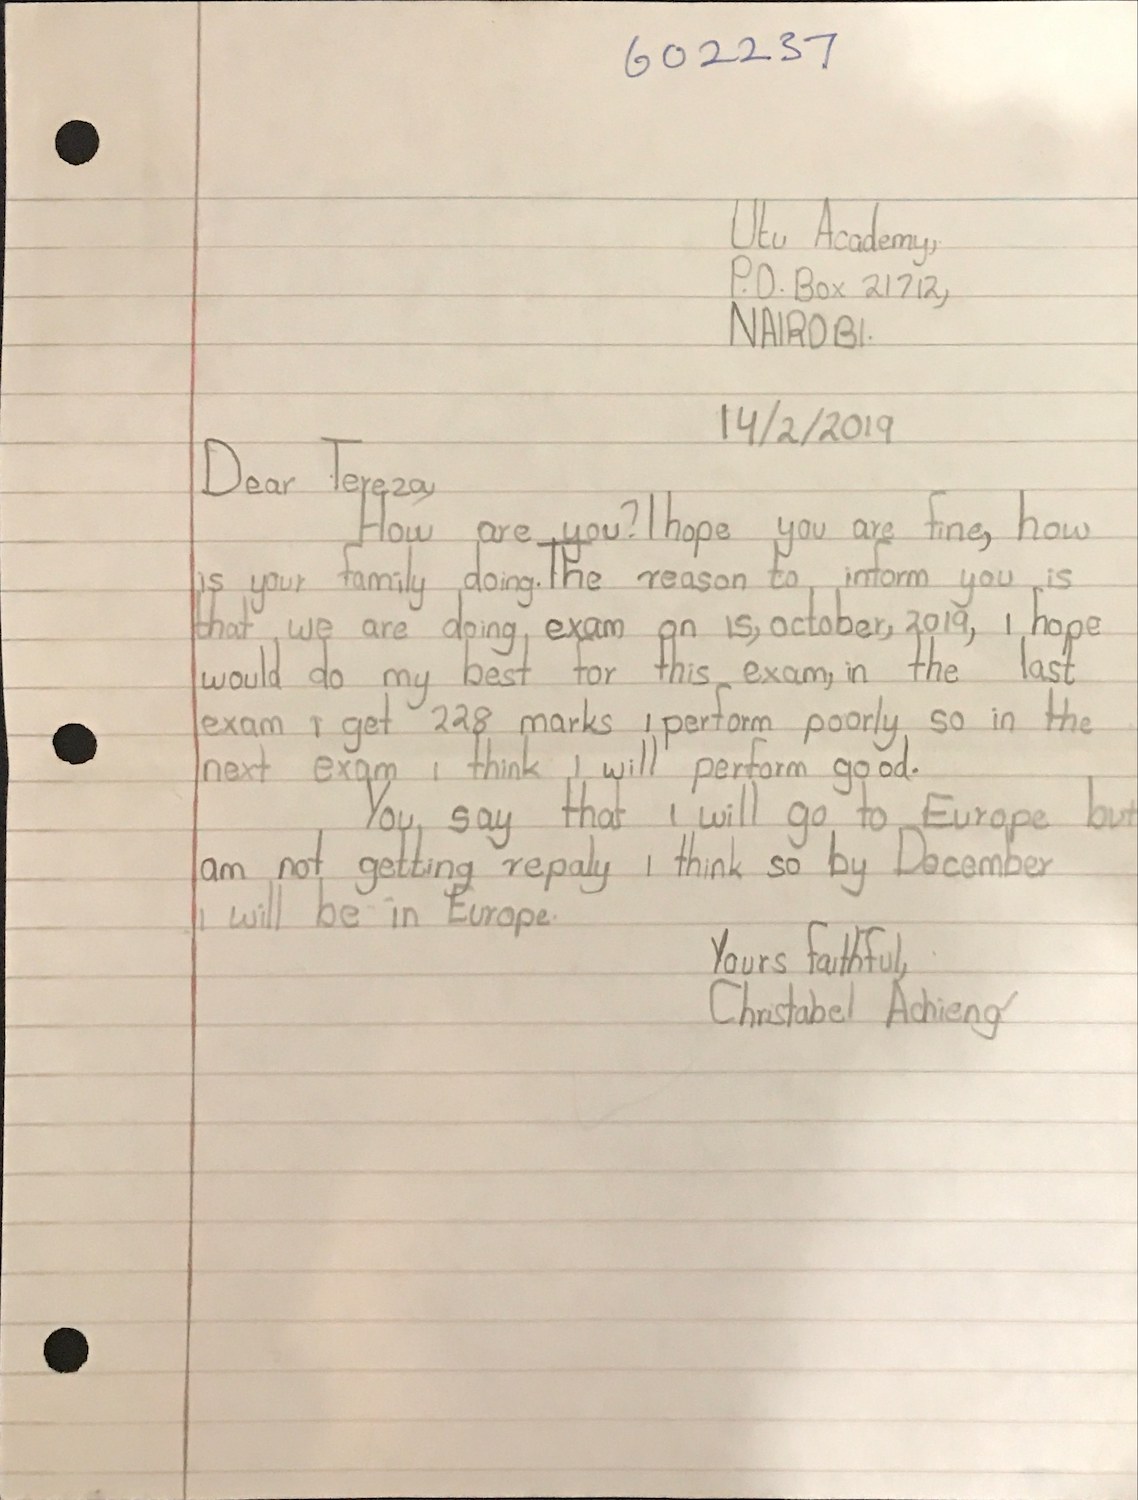 602237
Utu Academy,
P.O. Box 21712,
NAIROBI.
14/2/2019
Dear Tereza,
How are you? I hope you are fine, how
is your family doing. The reason to inform you is
that we are doing exam on 15, october, 2019, I hope
would do my best for this exam, in the last
exam I get 228 marks I perform poorly so in the
next exam I think I will perform good.
You say that I will go to Europe but
am not getting repaly I think so by December
I will be in Europe.
Yours faithful,
Christabel Achieng